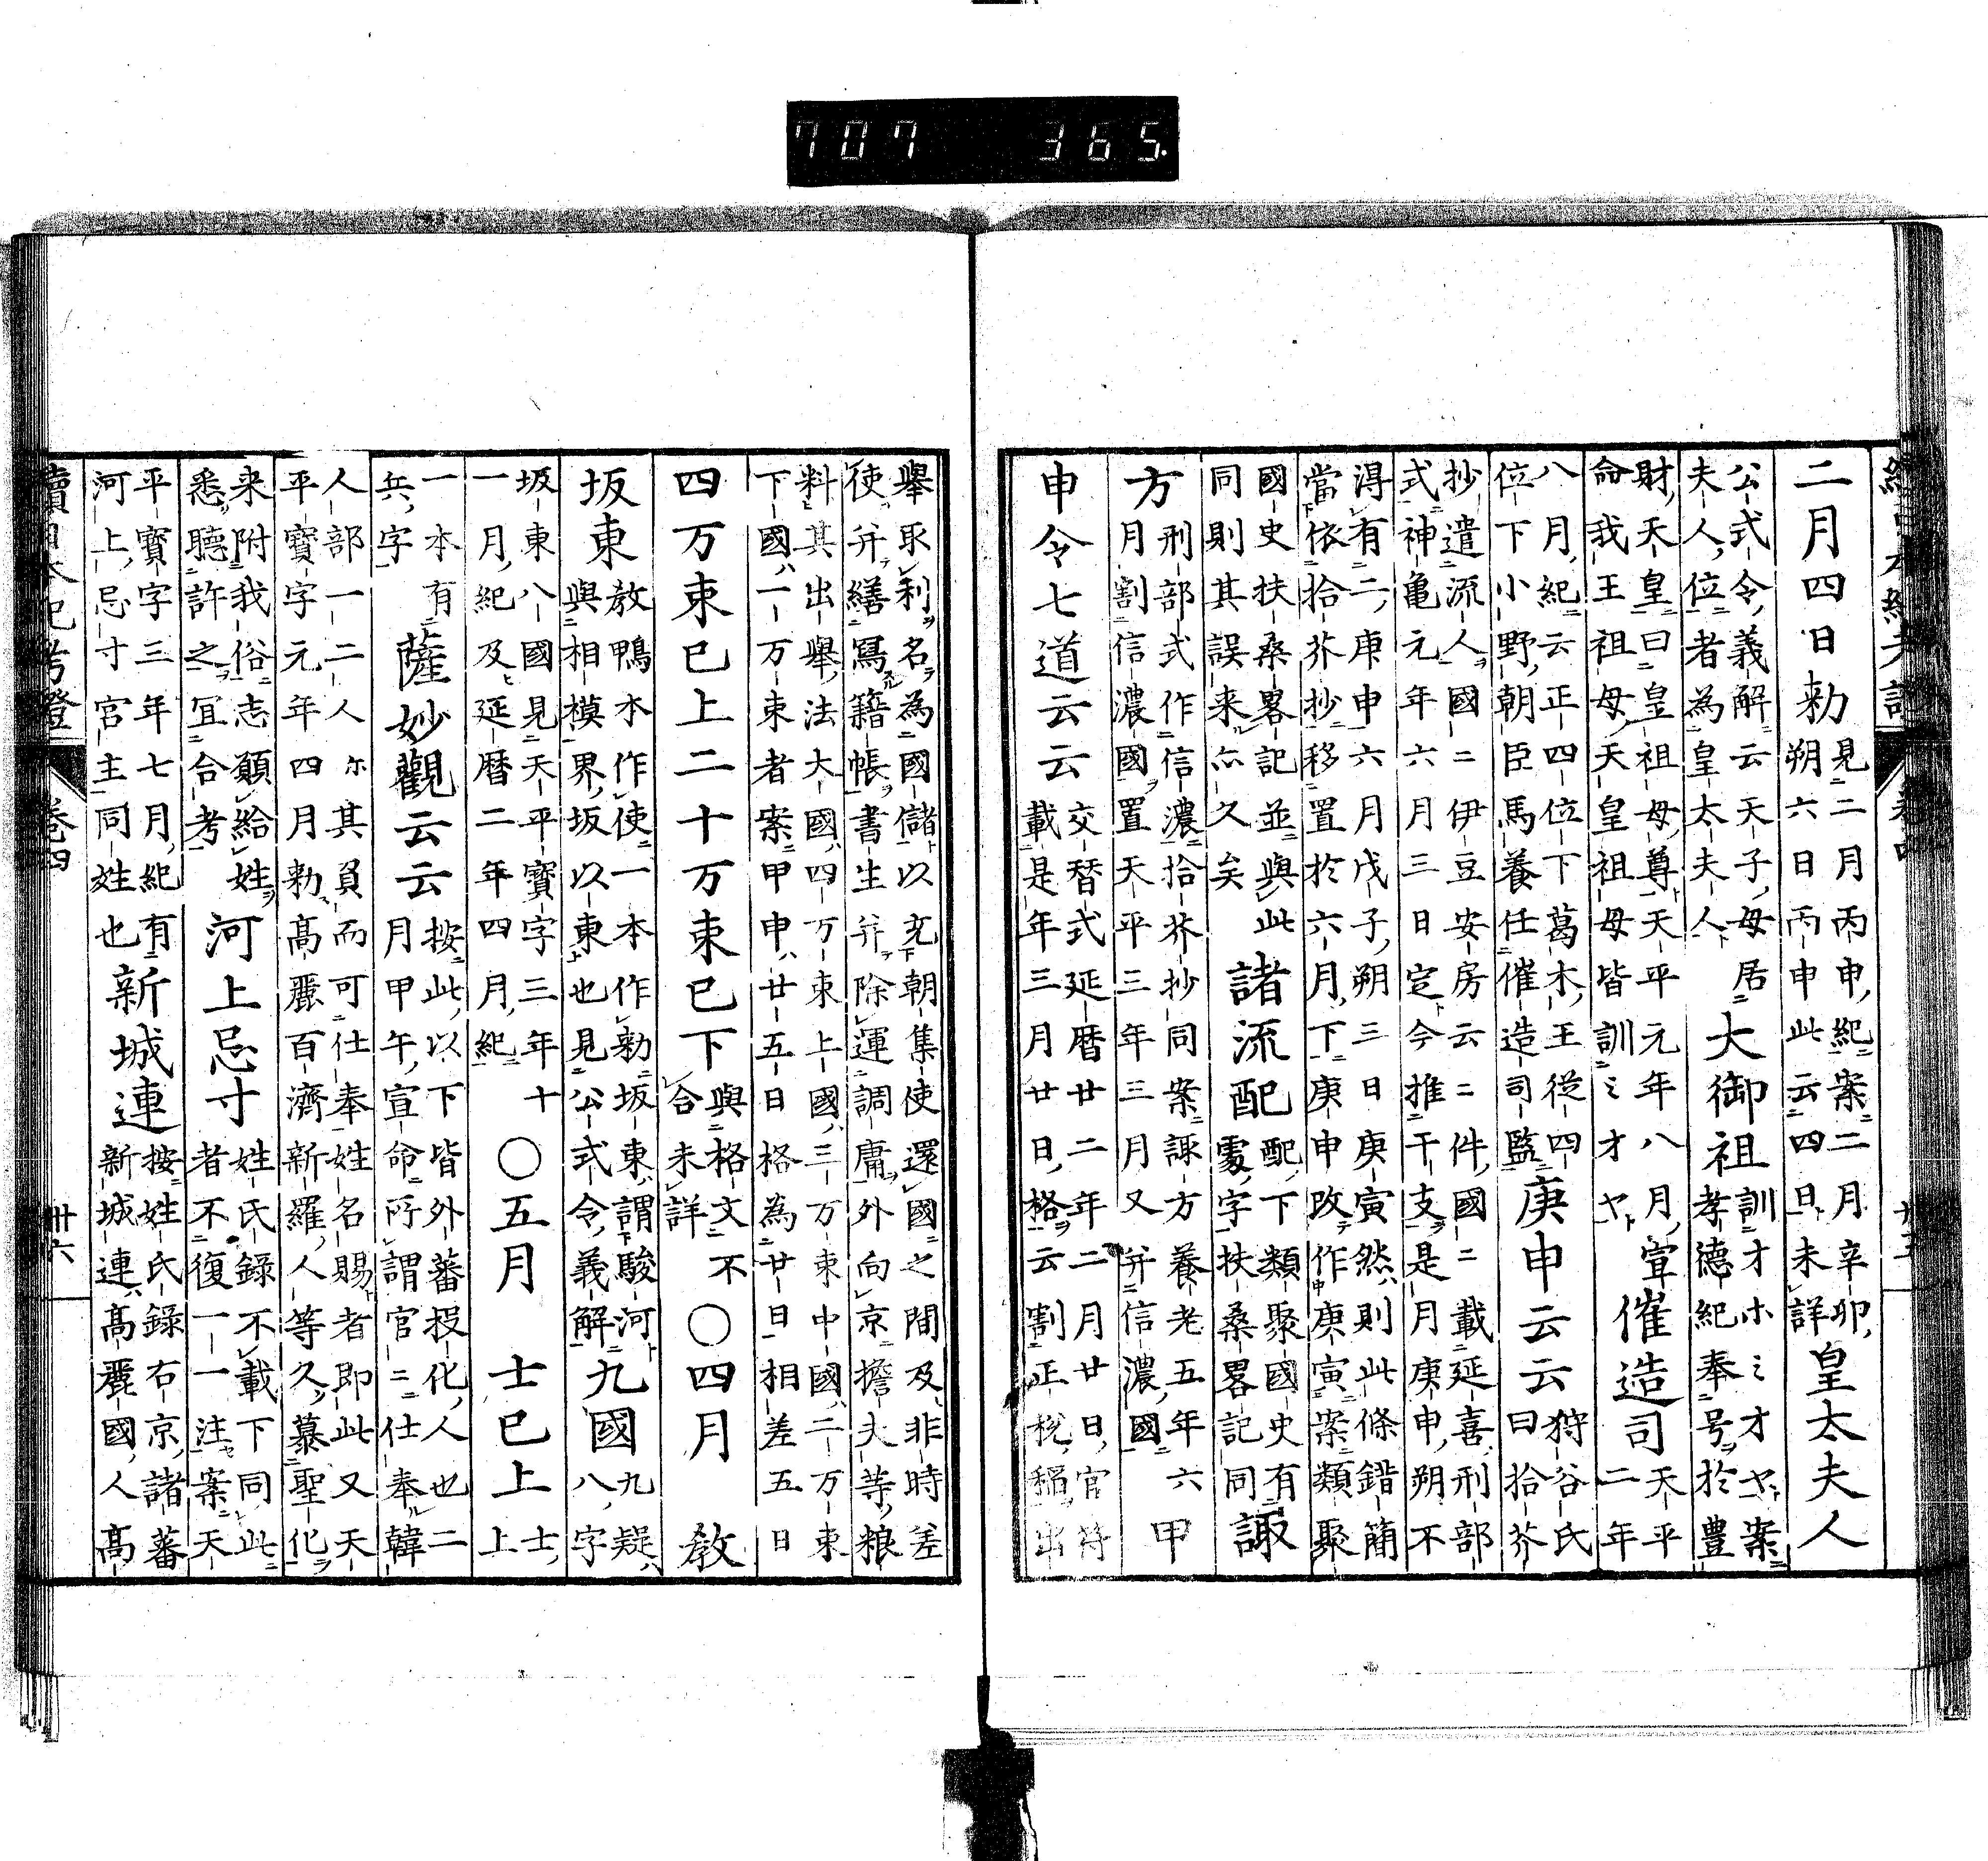 707 365.
二月四日勅
見二月丙申紀案二月辛卯
朔六日丙申此云四旦未詳
皇太夫人
公式令義解云天子母居
夫人位者為皇太夫人
大御祖
訓才ホミ才ヤ案
孝德紀奉号於豊
財天皇曰皇祖母尊天平元年八月宣
命我王祖母天皇祖母皆訓ミ才ヤ
催造司
天平
二年
八月紀云正四位下葛木王從四
位下小野朝臣馬養任催造司監
庚申云云
狩谷氏
曰拾芥
抄遣流人國二伊豆安房云二件國二載延喜刑部
式神亀元年六月三日定今推干支是月庚申朔不
淂有二庚申六月戊子朔三日庚寅然則此條錯簡
當依拾芥抄移置於六月下庚申改作庚寅案類聚
國史扶桑畧記並與此
同則其誤来尒久矣
諸流配
配下類聚國史有
處字扶桑畧記同
諏
方
刑部式作信濃拾芥抄同案諏方養老五年六
月割信濃國置天平三年三月又并信濃國
甲
申令七道云云
交替式延暦廿二年二月廿日官符
載是年三月廿日格云割正税稲出
舉取利名為國儲以充朝集使還國之間及非時差
使并繕寫籍帳書生并除運調庸外向京擔夫等粮
料其出舉法大國四万束上國三万束中國二万束
下國一万束者案甲申廿五日格為廿日相差五日
四万束已上二十万束已下
與格文不
合未詳
○四月
教
坂東
教鴨本作使一本作勅坂東謂駿河
與相模界坂以東也見公式令義解
九國
九疑
八字
坂東八國見天平寶字三年十
一月紀及延暦二年四月紀
○五月
士已上
士
上
一本有
兵字
薩妙觀云云
按此以下皆外蕃投化人也二
月甲午宣命所謂官二仕奉韓
人部一二人人尓其負而可仕奉姓名賜者即此又天
平寶字元年四月勅高麗百濟新羅人等久慕聖化
来附我俗志願給姓
悉聽許之冝合考
河上忌寸
姓氏録不載下同此
者不復一一注案天
平寶字三年七月紀有
河上忌寸宮主同姓也
新城連
按姓氏録右京諸蕃
新城連高麗國人高
續日本紀考證
卷四
卅六